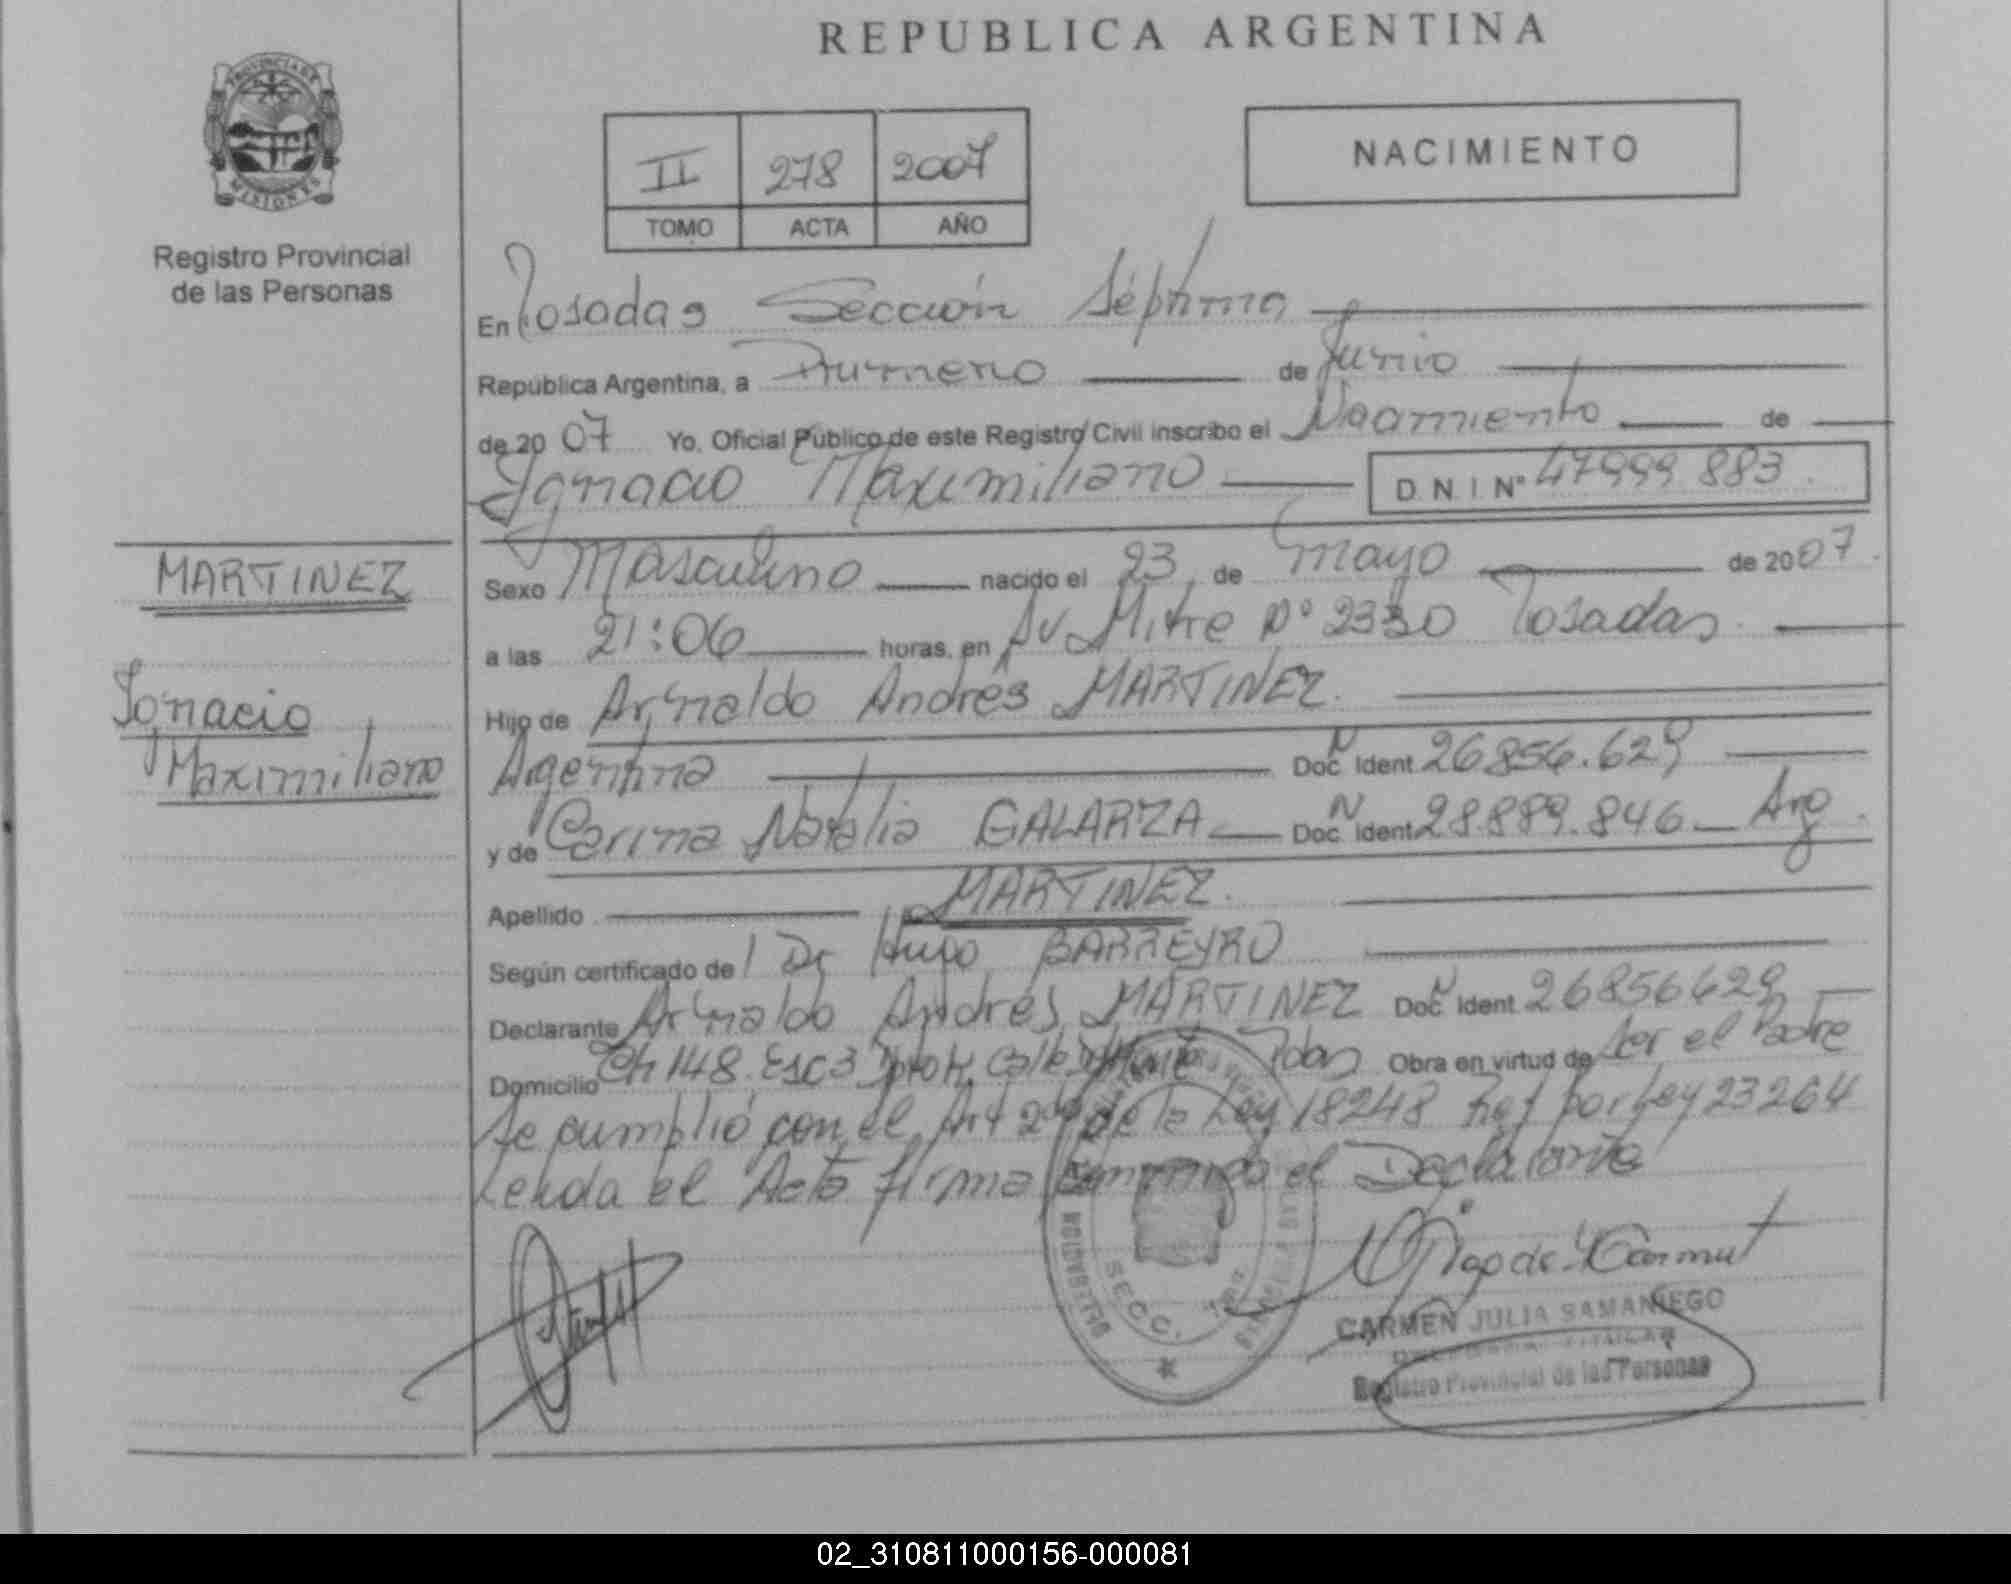 REPUBLICA ARGENTINA
PROVINCIA DE
MISIONES
Registro Provincial
de las Personas
II 278 2007
TOMO ACTA AÑO
NACIMIENTO
En Posadas Sección Séptima
República Argentina, a Primero de Junio
de 2007 Yo, Oficial Público de este Registro Civil inscribo el Nacimiento de
Ignacio Maximiliano D.N.I. Nº 47999883.
MARTINEZ
Ignacio
Maximiliano
Sexo Masculino nacido el 23 de Mayo de 2007.
a las 21:06 horas, en Av. Mitre Nº 2330 Posadas.
Hijo de Arnaldo Andrés MARTINEZ.
Argentina Doc. Ident 26.856.629
y de Carina Natalia GALARZA Doc. Ident 28.889.846 Arg.
Apellido MARTINEZ.
Según certificado de Dr Hugo BARREYRO
Declarante Arnaldo Andrés MARTINEZ Doc. Ident. 26856629
Domicilio Ch 148. Esc 3 Calle Pdas Obra en virtud de ser el Padre
Se cumplió con el Art 2do de la Ley 18248 Ref por Ley 23264
Leida el Acta firma conmigo el Declarante
SECC.
CARMEN JULIA SAMANIEGO
Registro Provincial de las Personas
02_310811000156-000081